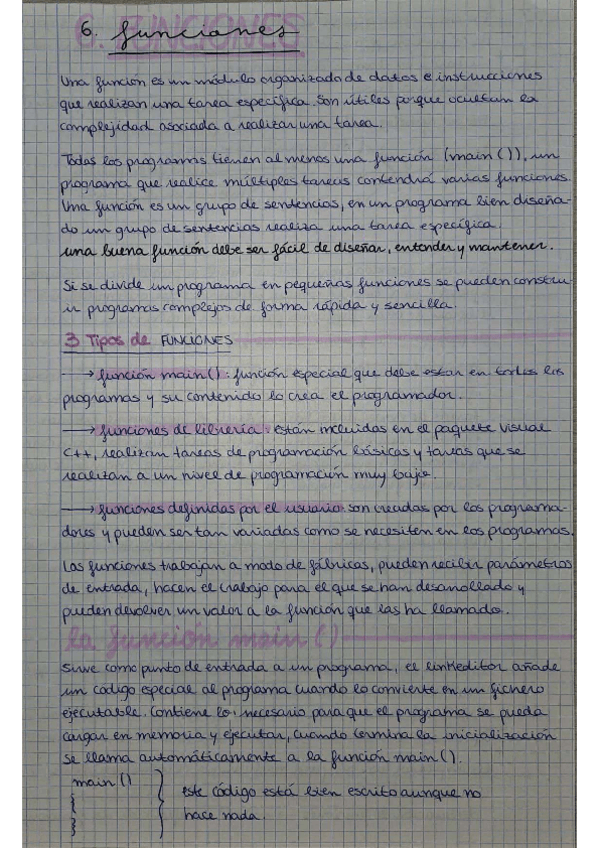 6. funciones
Una función es un módulo organizado de datos e instrucciones
que realizan una tarea específica. Son útiles porque ocultan la
complejidad asociada a realizar una tarea.
Todas los programas tienen al menos una función (main()), un
programa que realice múltiples tareas contendrá varias funciones.
Una función es un grupo de sentencias, en un programa bien diseña-
do un grupo de sentencias realiza una tarea específica.
una buena función debe ser fácil de diseñar, entender y mantener.
Si se divide un programa en pequeñas funciones se pueden constru-
ir programas complejos de forma rápida y sencilla.
3 Tipos de FUNCIONES
→ función main(): función especial que debe estar en todos los
programas y su contenido lo crea el programador.
→ funciones de librería: están incluidas en el paquete visual
C++, realizan tareas de programación básicas y tareas que se
realizan a un nivel de programación muy bajo.
→ funciones definidas por el usuario: son creadas por los programa-
dores y pueden ser tan variadas como se necesiten en los programas.
Las funciones trabajan a modo de fábricas, pueden recibir parámetros
de entrada, hacen el trabajo para el que se han desarrollado y
pueden devolver un valor a la función que las ha llamado.
la función main()
Sirve como punto de entrada a un programa, el linkeditor añade
un código especial al programa cuando lo convierte en un fichero
ejecutable. Contiene lo necesario para que el programa se pueda
cargar en memoria y ejecutar, cuando termina la inicialización
se llama automáticamente a la función main().
main()
{
}
este código está bien escrito aunque no
hace nada.